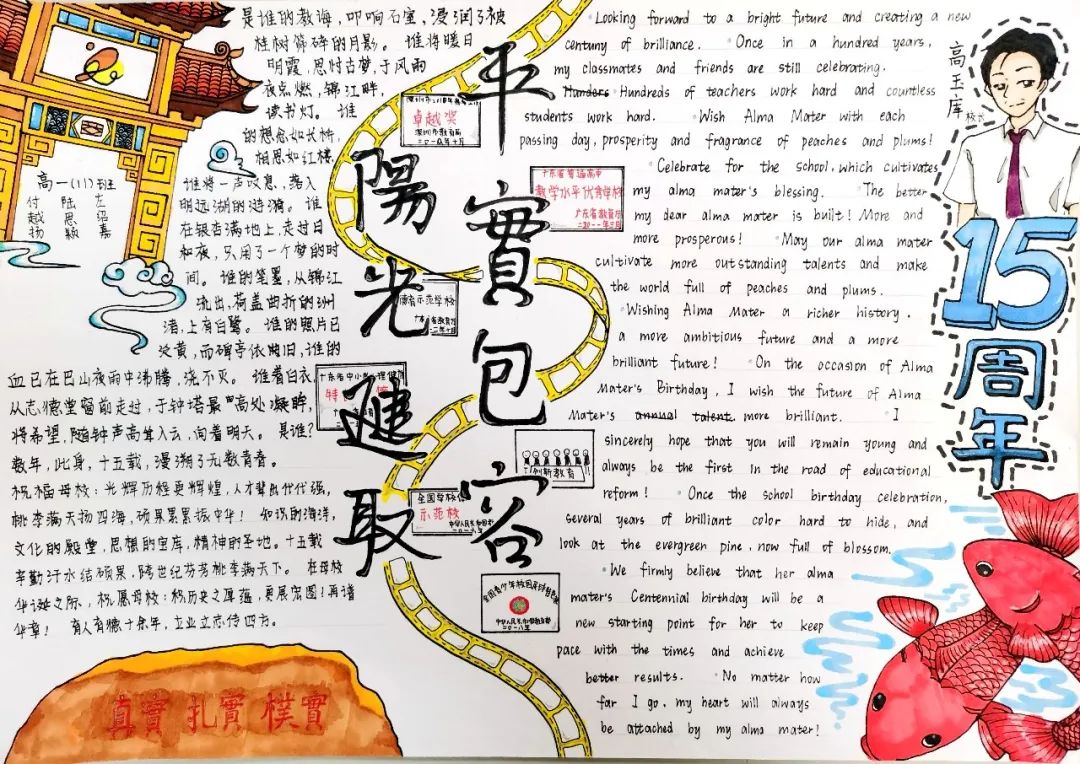 是谁的教诲，叩响石室，漫润了被
桂树筛碎的月影。谁将暖日
明霞，思忖古梦，于风雨
夜点燃，锦江畔，
读书灯。谁
的想念如长桥，
相思如红楼，
谁将一声叹息，落入
明远湖的涟漪。谁
在银杏满地上，走过日
和夜，只用了一个梦的时
间。谁的笔墨，从锦江
流出，荷盖曲折的洲
渚，上有白鹭。谁的照片已
泛黄，而碑亭依然如旧，谁的
血已在巴山夜雨中沸腾，浇不灭。谁着白衣
从志德堂窗前走过，于钟塔最高处凝眸，
将希望，随钟声高耸入云，向着明天。是谁？
数年，此身，十五载，漫溯了无数青春。
祝福母校：光辉历程更辉煌，人才辈出代代强，
桃李满天扬四海，硕果累累振中华！知识的海洋，
文化的殿堂，思想的宝库，精神的圣地。十五载
辛勤汗水结硕果，跨世纪芬芳桃李满天下。在母校
华诞之际，祝愿母校：积历史之厚蕴，更展宏图！再谱
华章！育人有德十余年，立业立志传四方。
高一(11)班
付 陆 左
越 思 绍
扬 颖 嘉
真實 扎實 樸實
平
陽
光
進
取
實
包
容
卓越奖
深圳市教育局
广东省普通高中
教学水平优秀学校
广东省教育厅
示范学校
创新教育
全国学校
示范校
Looking forward to a bright future and creating a new
centuny of brilliance. Once in a hundred years,
my classmates and friends are still celebrating.
Hunders Hundreds of teachers work hard and countless
students work hard. Wish Alma Mater with each
passing day, prosperity and fragrance of peaches and plums!
Celebrate for the school, which cultivates
my alma mater's blessing. The better
my dear alma mater is built! More and
more prosperous! May our alma mater
cultivate more outstanding talents and make
the world full of peaches and plums.
Wishing Alma Mater a richer history,
a more ambitious future and a more
brilliant future! On the occasion of Alma
Mater's Birthday, I wish the future of Alma
Mater's annual talent more brilliant. I
sincerely hope that you will remain young and
always be the first in the road of educational
reform! Once the school birthday celebration,
several years of brilliant color hard to hide, and
look at the evergreen pine, now full of blossom.
We firmly believe that her alma
mater's Centennial birthday will be a
new starting point for her to keep
pace with the times and achieve
better results. No matter how
far I go, my heart will always
be attached by my alma mater!
高玉库
校长
15
周
年